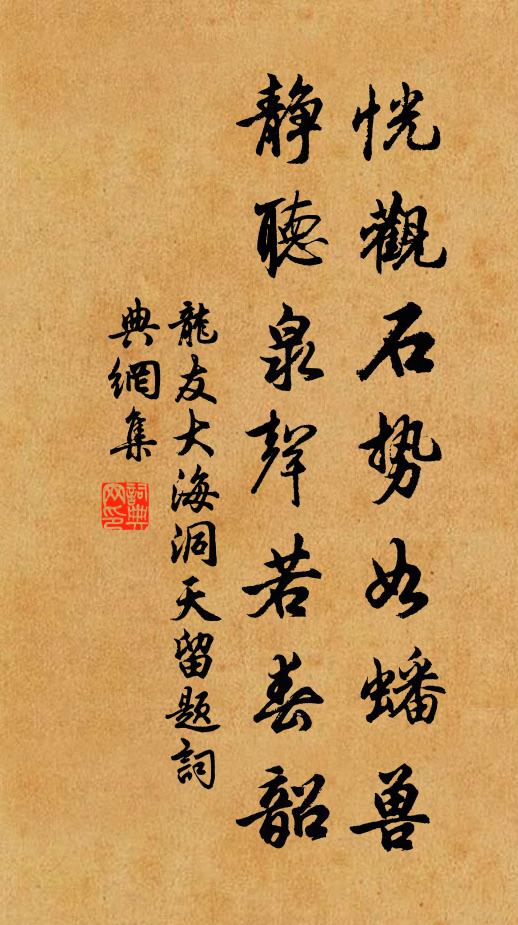 恍觀石势如蟠兽
静聽泉聲若春韶
龍友大海洞天留题詞
典網集
詞典
网印